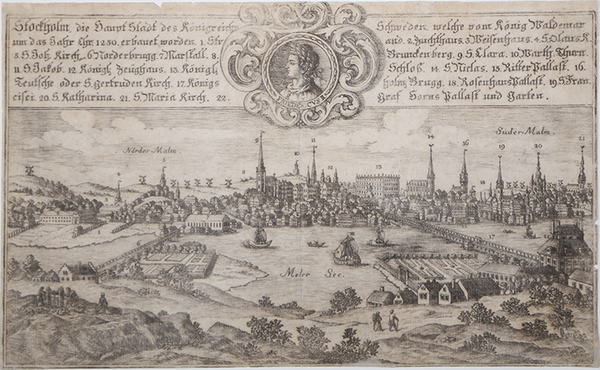 Stockholm, die Haupt Stadt des Königreichs Schweden, welche vom König Waldemar
um das Jahr Chr. 1250. erbauet worden. 1. Str and. 2. Zuchthaus. 3. Weisenhaus. 4. S. Olaus. K.
5. S. Joh. Kirch. 6. Norderbrugg. 7. Marstall. 8. Brunckenberg. 9. S. Clara. 10. Warth Thurn.
11. S. Jacob. 12. Königl. Zeughaus. 13. Königl. Schloß. 14. S. Niclas. 15. Ritter Pallast. 16.
Teutsche oder S. Gertruden Kirch. 17. Königs holm Brugg. 18. Rosenhans Pallast. 19. S. Fran
cisci. 20. S. Katharina. 21. S. Maria Kirch. 22. Graf Horns Pallast und Garten.
Norder Malm
Suder Malm
Meler See.